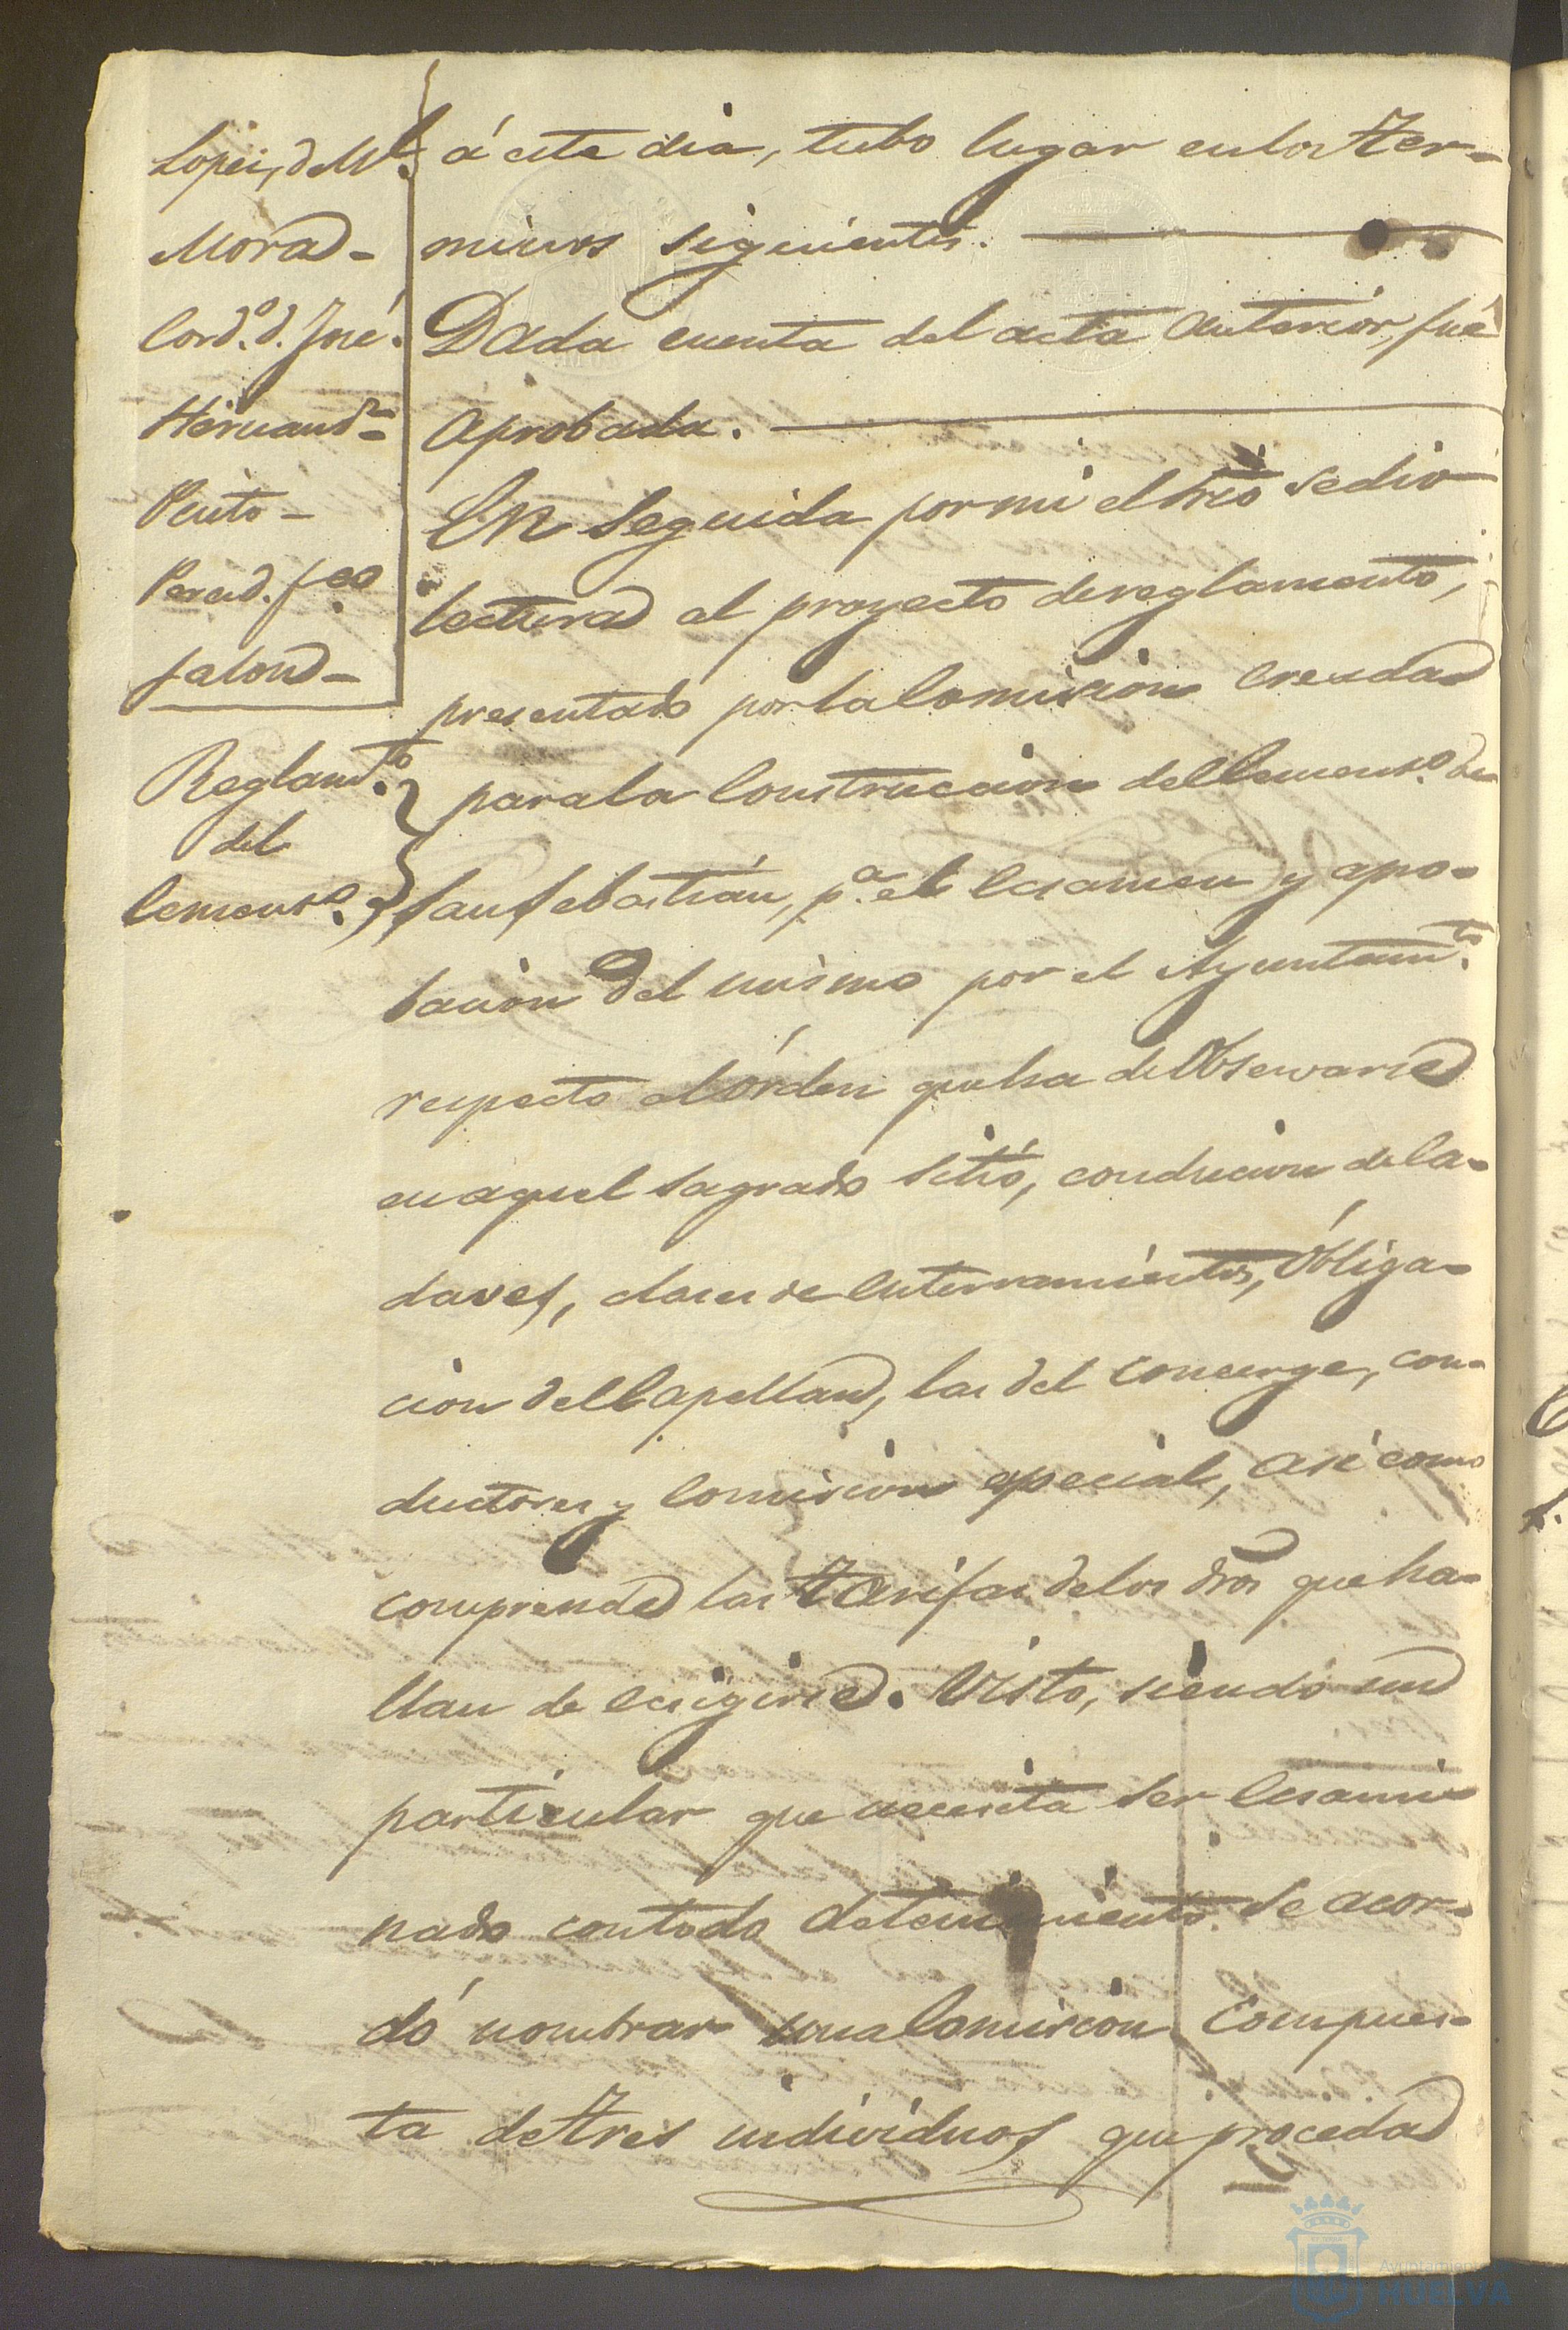 Lopez, d. Ml.
Mora -
Cord.º d. José.
Hernandz -
Pinto -
Perez d. Fco.
Jalon -
Reglamto.
del
Cementº.
á este dia, tubo lugar en los ter-
minos siguientes.
Dada cuenta del acta anterior, fué
aprobada.
En seguida por mi el Srio se dio
lectura al proyecto de reglamento,
presentado por la Comision creada
para la Construccion del Cementº. de
San Sebastián, pª. el Ecsamen y apo-
bacion del mismo por el Ayuntamto.
respecto al órden que ha de Observarse
en aquel sagrado sitió, conducion de ca-
daves, clases de Enterramientos, Obliga-
cion del Capellan, las del Concerge, con-
ductores y Comision especial, asi como
comprende las tarifas de los dros que ha-
llan de ecsigirse. Visto, siendo un
particular que necesita ser Ecsami-
nado con todo detenimiento. Se acor-
dó nombrar una Comision Compues-
ta de tres individuos que proceda
Ayuntamiento
HUELVA